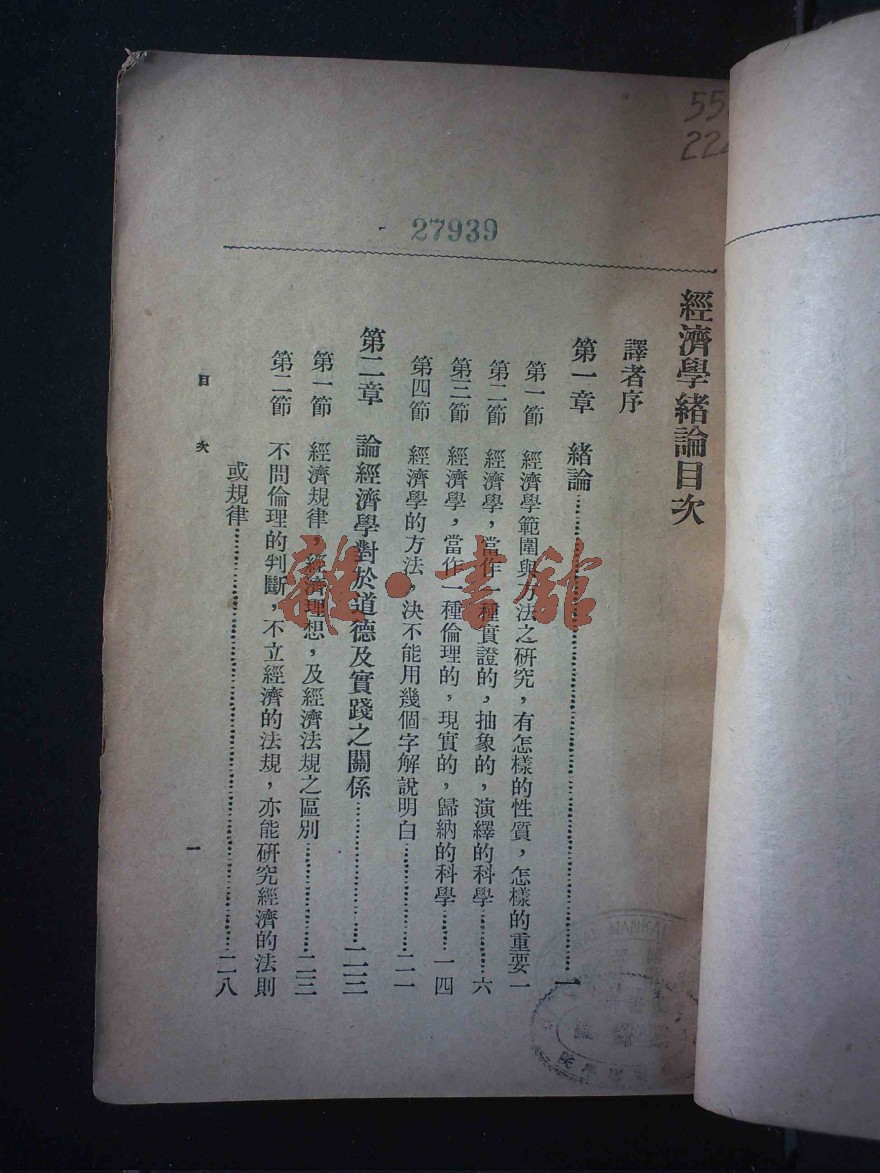 55
22
27939
經濟學緒論目次
譯者序
第一章 緒論……一
第一節 經濟學範圍與方法之研究,有怎樣的性質,怎樣的重要一
第二節 經濟學,當作一種實證的,抽象的,演繹的科學……六
第三節 經濟學,當作一種倫理的,現實的,歸納的科學……一四
第四節 經濟學的方法,決不能用幾個字解說明白……二一
第二章 論經濟學對於道德及實踐之關係……二三
第一節 經濟規律,經濟理想,及經濟法規之區別……二三
第二節 不問倫理的判斷,不立經濟的法規,亦能研究經濟的法則
或規律……二八
目次
一
雜·書館